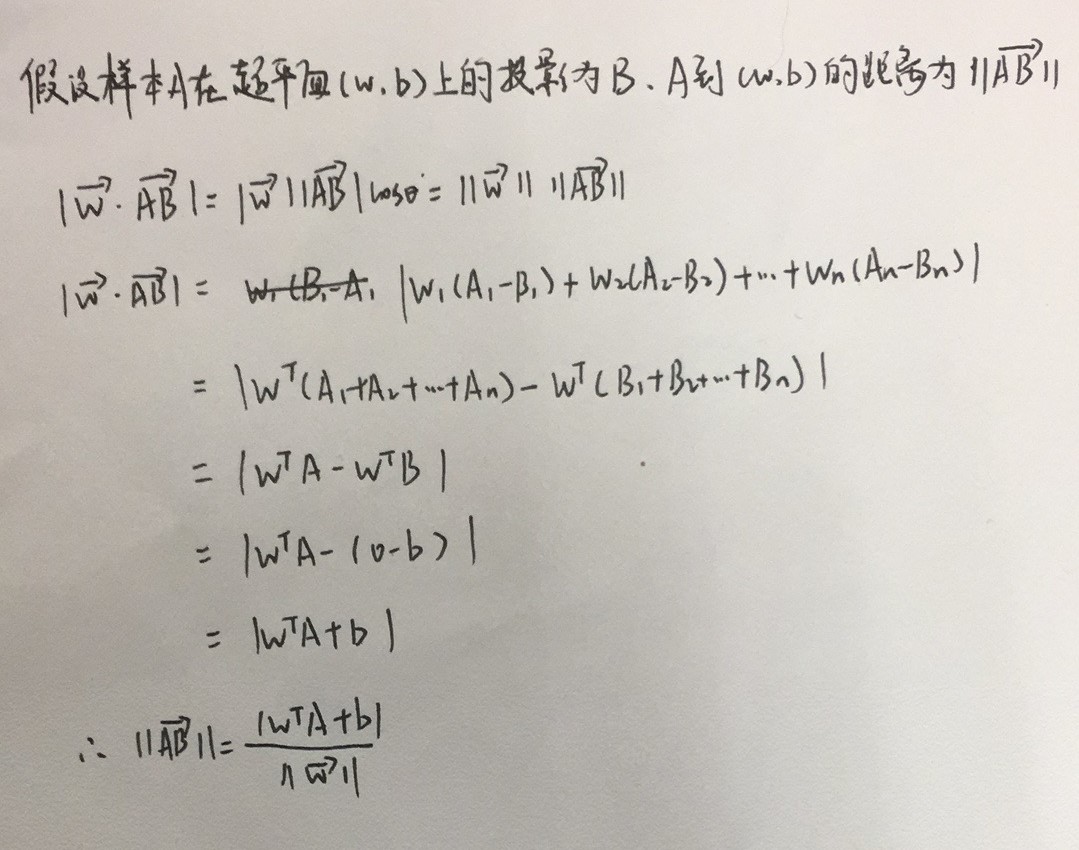 假设样本A在超平面(w,b)上的投影为B、A到(w,b)的距离为||$\overrightarrow{AB}$||
|$\overrightarrow{w}$·$\overrightarrow{AB}$|=|$\overrightarrow{w}$||$\overrightarrow{AB}$|cosθ=||$\overrightarrow{w}$|| ||$\overrightarrow{AB}$||
|$\overrightarrow{w}$·$\overrightarrow{AB}$|= |W₁(A₁-B₁)+W₂(A₂-B₂)+…+Wₙ(Aₙ-Bₙ)|
= |Wᵀ(A₁+A₂+…+Aₙ)-Wᵀ(B₁+B₂+…+Bₙ)|
= |WᵀA-WᵀB|
= |WᵀA-(0-b)|
= |WᵀA+b|
∴ ||$\overrightarrow{AB}$||=$\frac{|W^TA+b|}{||\overrightarrow{w}||}$